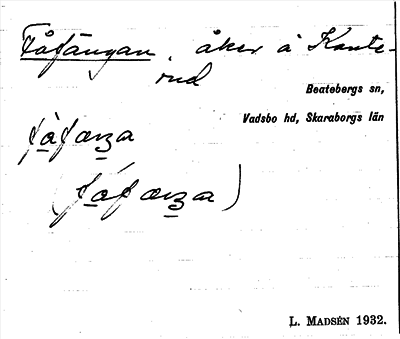 Fåfängan, åker å Kante-
rud
Beatebergs sn,
Vadsbo hd, Skaraborgs län
L. MADSÉN 1932.